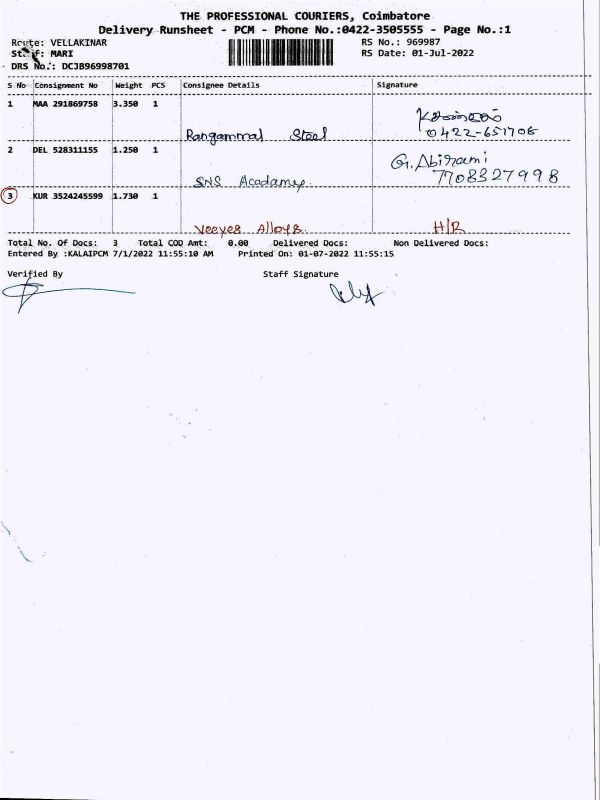 THE PROFESSIONAL COURIERS, Coimbatore
Delivery Runsheet - PCM - Phone No.:0422-3505555 - Page No.:1
Route: VELLAKINAR
RS No.: 969987
Staff: MARI
RS Date: 01-Jul-2022
DRS No.: DCJB96998701
S No Consignment No Weight PCS Consignee Details Signature
1 MAA 291869758 3.350 1
Rangammal Steel 0422-651706
2 DEL 528311155 1.250 1 G. Abirami
SNS Acadamy 7708327998
3 KUR 3524245599 1.730 1
Veeyes Alloys H/R
Total No. Of Docs: 3 Total COD Amt: 0.00 Delivered Docs: Non Delivered Docs:
Entered By :KALAIPCM 7/1/2022 11:55:10 AM Printed On: 01-07-2022 11:55:15
Verified By Staff Signature